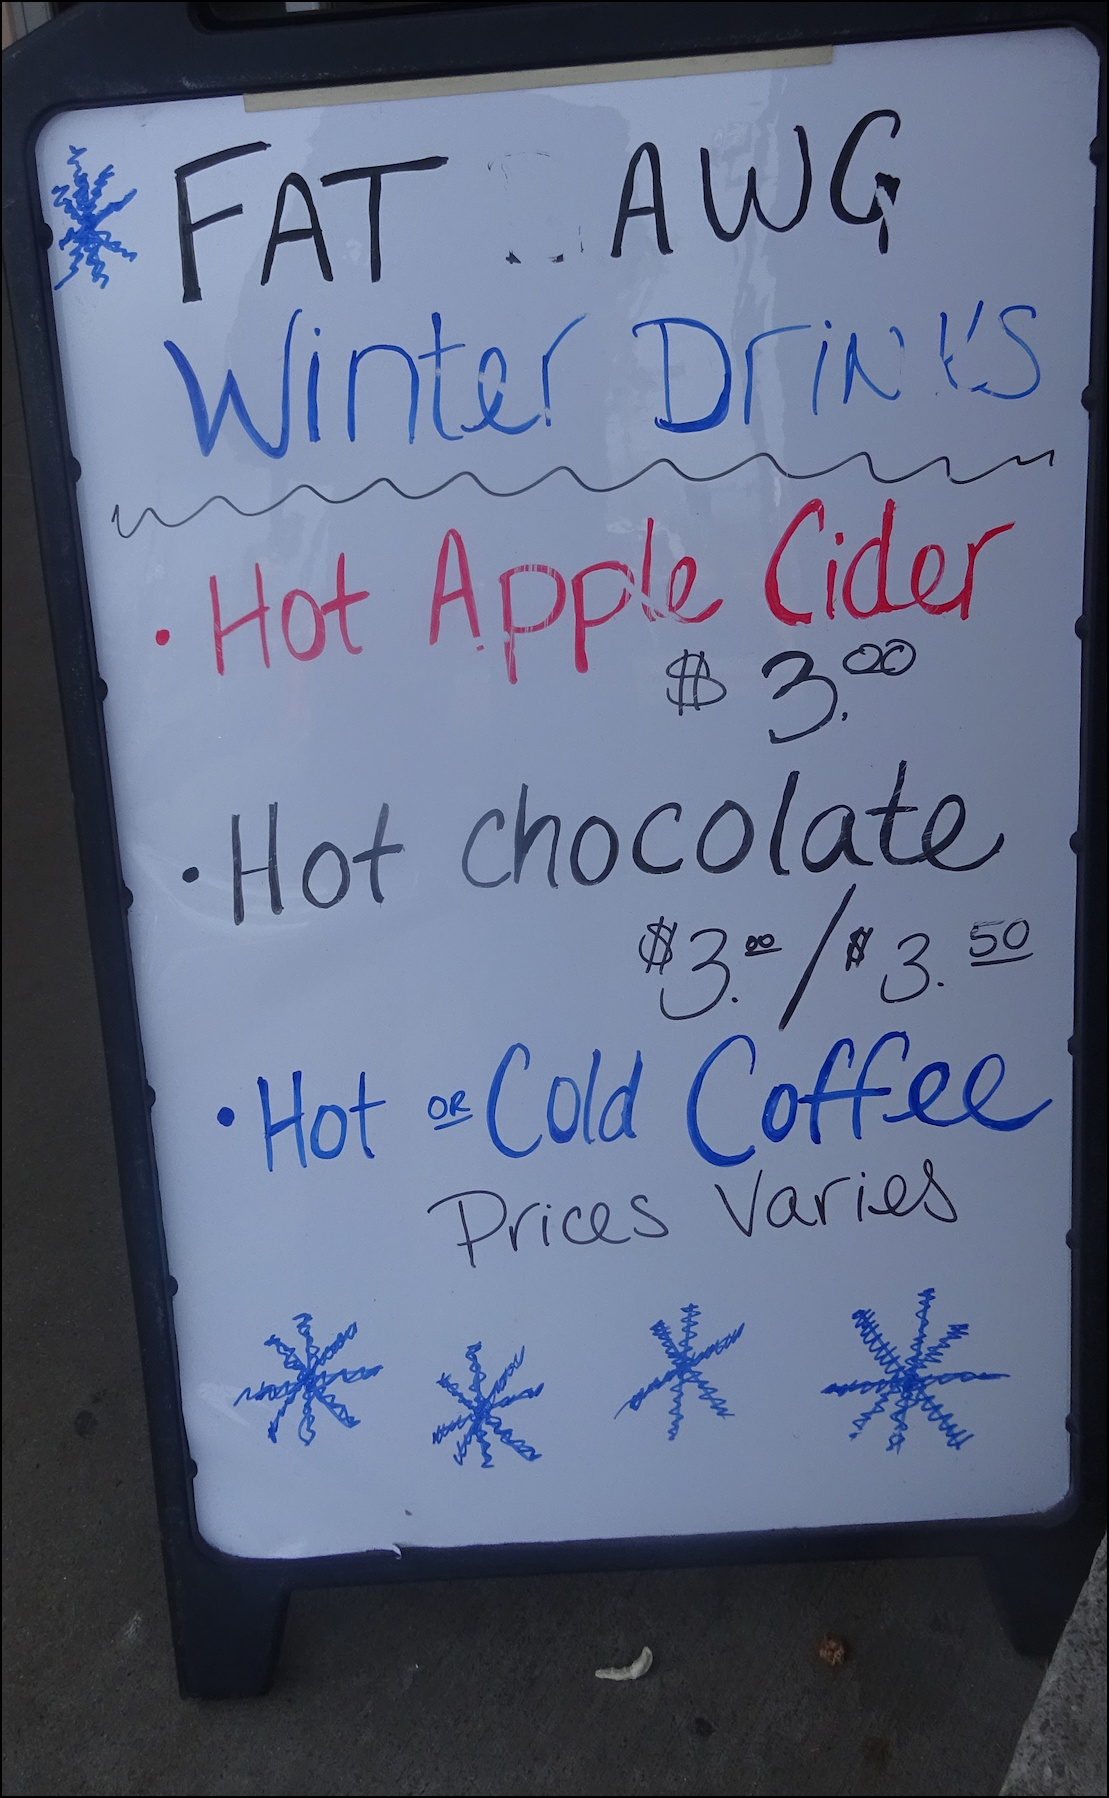 FAT AWG
Winter Drinks
• Hot Apple Cider
$3.00
• Hot chocolate
$3.00/$3.50
• Hot OR Cold Coffee
Prices Varies